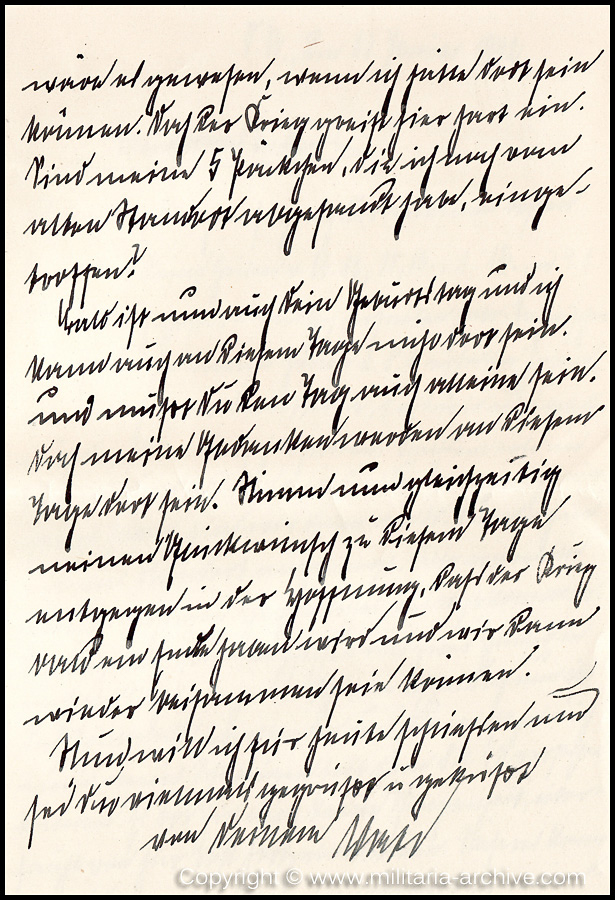 wäre es gewesen, wenn ich hätte dort sein
können. Doch der Krieg greift hier hart ein.
Sind meine 5 Päckchen, die ich noch vom
alten Standort abgesandt habe, einge-
troffen?
Bald ist nun auch Dein Geburtstag und ich
kann auch an diesem Tage nicht dort sein.
und mußt Du den Tag auch alleine sein.
Doch meine Gedanken werden an diesem
Tage dort sein. Nimm nun gleichzeitig
meinen Glückwunsch zu diesem Tage
entgegen in der Hoffnung, daß der Krieg
bald ein Ende haben wird und wir dann
wieder beisammen sein können.
Nun will ich für heute schließen und
sei Du vielmals gegrüßt u geküßt
von Deinem
Copyright © www.militaria-archive.com